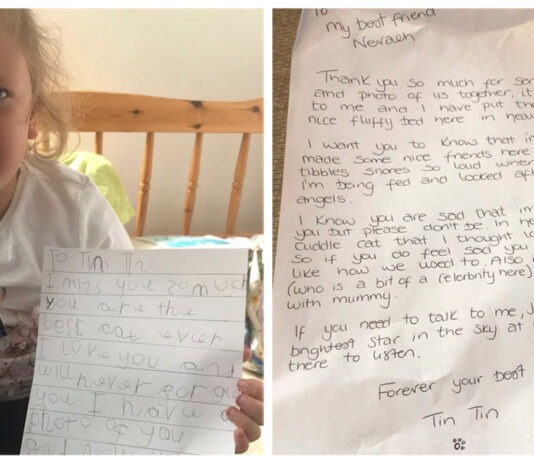 To Tin Tin
I mizs you so much
you are the
best cat ever
I love you and
will never for
you. I have a
photo of you
To
My best friend
Nevaeh
Thank you so much for
and photo of us together, it
to me and I have put
nice fluffy bed here in
I want you to know that
made some nice friends here
tibbles snores so loud when
I'm being fed and looked
angels.
I know you are sad that
you but please don't be in
cuddle cat that I thought
So if you do feel sad you
like how we used to. Also
(who is a bit of a celerbrity here)
with mummy.
If you need to talk to me,
brightest star in the sky at
there to listen.
Forever your best
Tin Tin